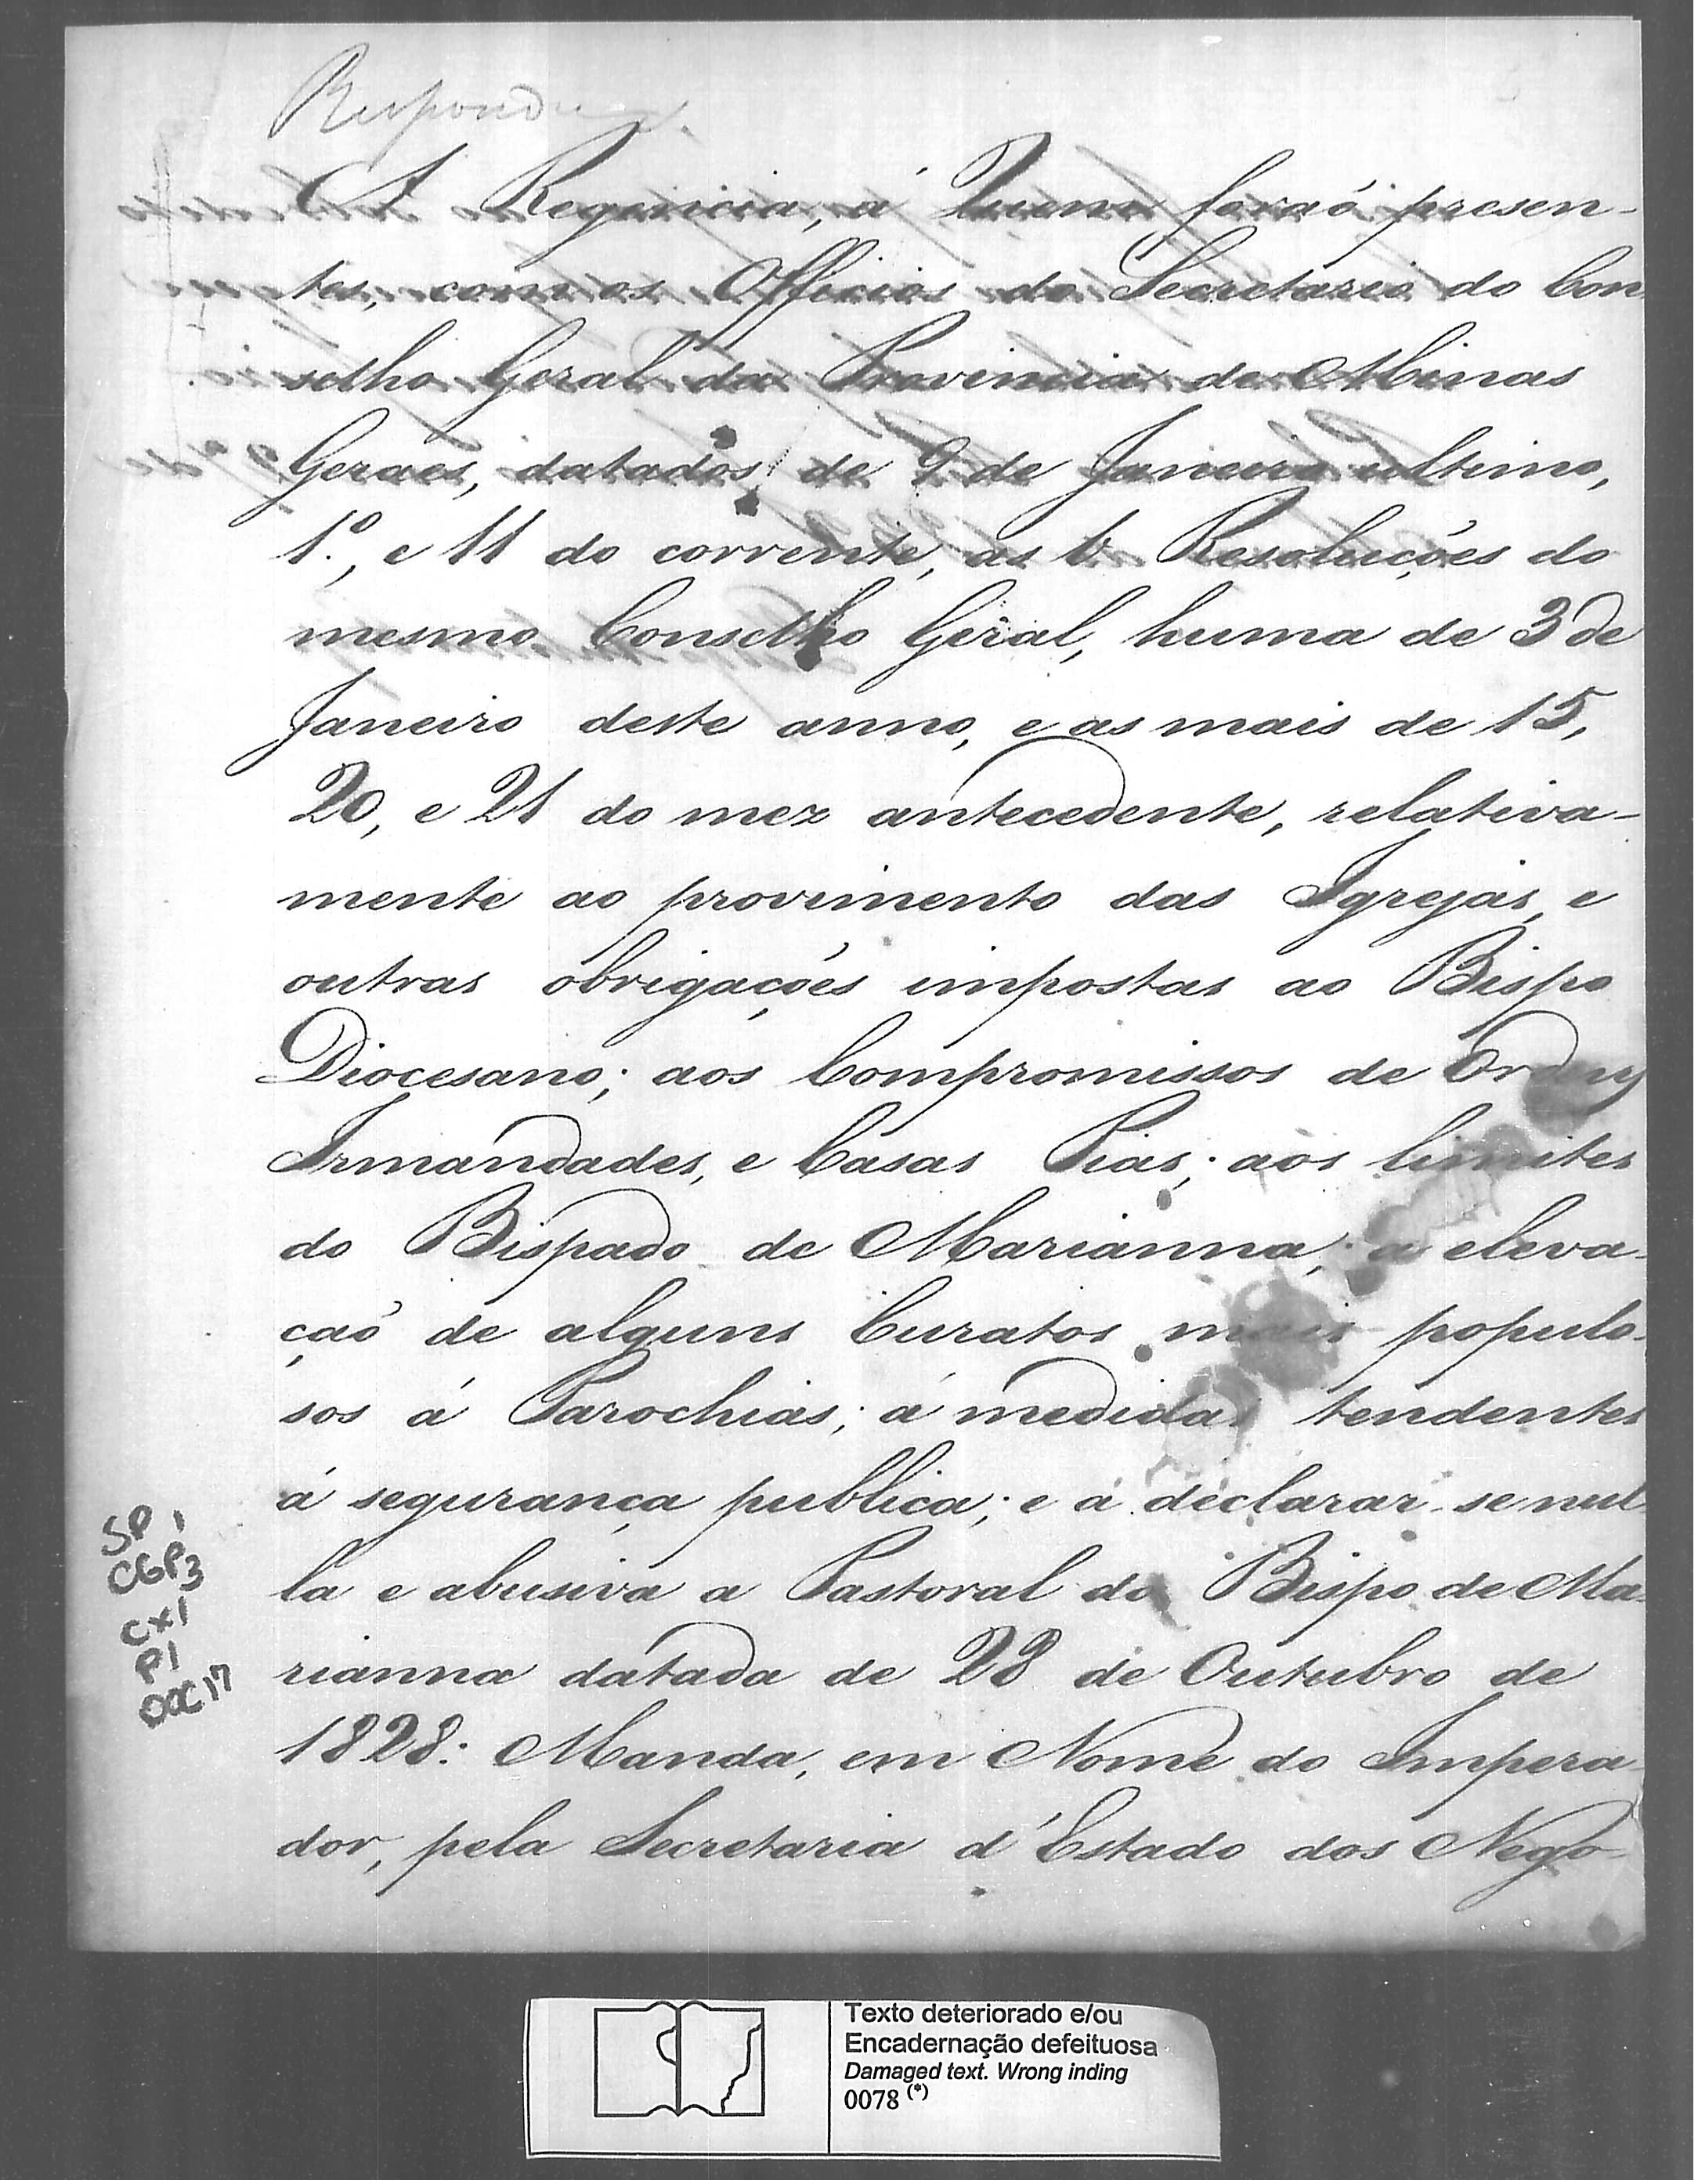 Respondida.
A Regencia, á Quem foraõ presen-
tes, com os Officios do Secretario do Con
selho Geral da Provincia de Minas
Geraes, datados de 9 de Janeiro ultimo,
1.º, e 11 do corrente, as 6 Resoluções do
mesmo Conselho Geral, huma de 3 de
Janeiro deste anno, e as mais de 15,
20, e 21 do mez antecedente, relativa-
mente ao provimento das Igrejas, e
outras obrigações impostas ao Bispo
Diocesano; aos Compromissos de Ordens
Irmandades, e Casas Pias; aos limites
do Bispado de Marianna; a eleva-
çaõ de alguns Curatos mais populo-
sos á Parochias; á medidas tendentes
á segurança publica; e a declarar-se nul
la e abusiva a Pastoral do Bispo de Ma-
rianna datada de 28 de Outubro de
1828: Manda, em Nome do Impera-
dor, pela Secretaria d'Estado dos Nego-
SP 1
CGP3
CX1
P1
DOC 17
Texto deteriorado e/ou
Encadernação defeituosa
Damaged text. Wrong inding
0078 (*)